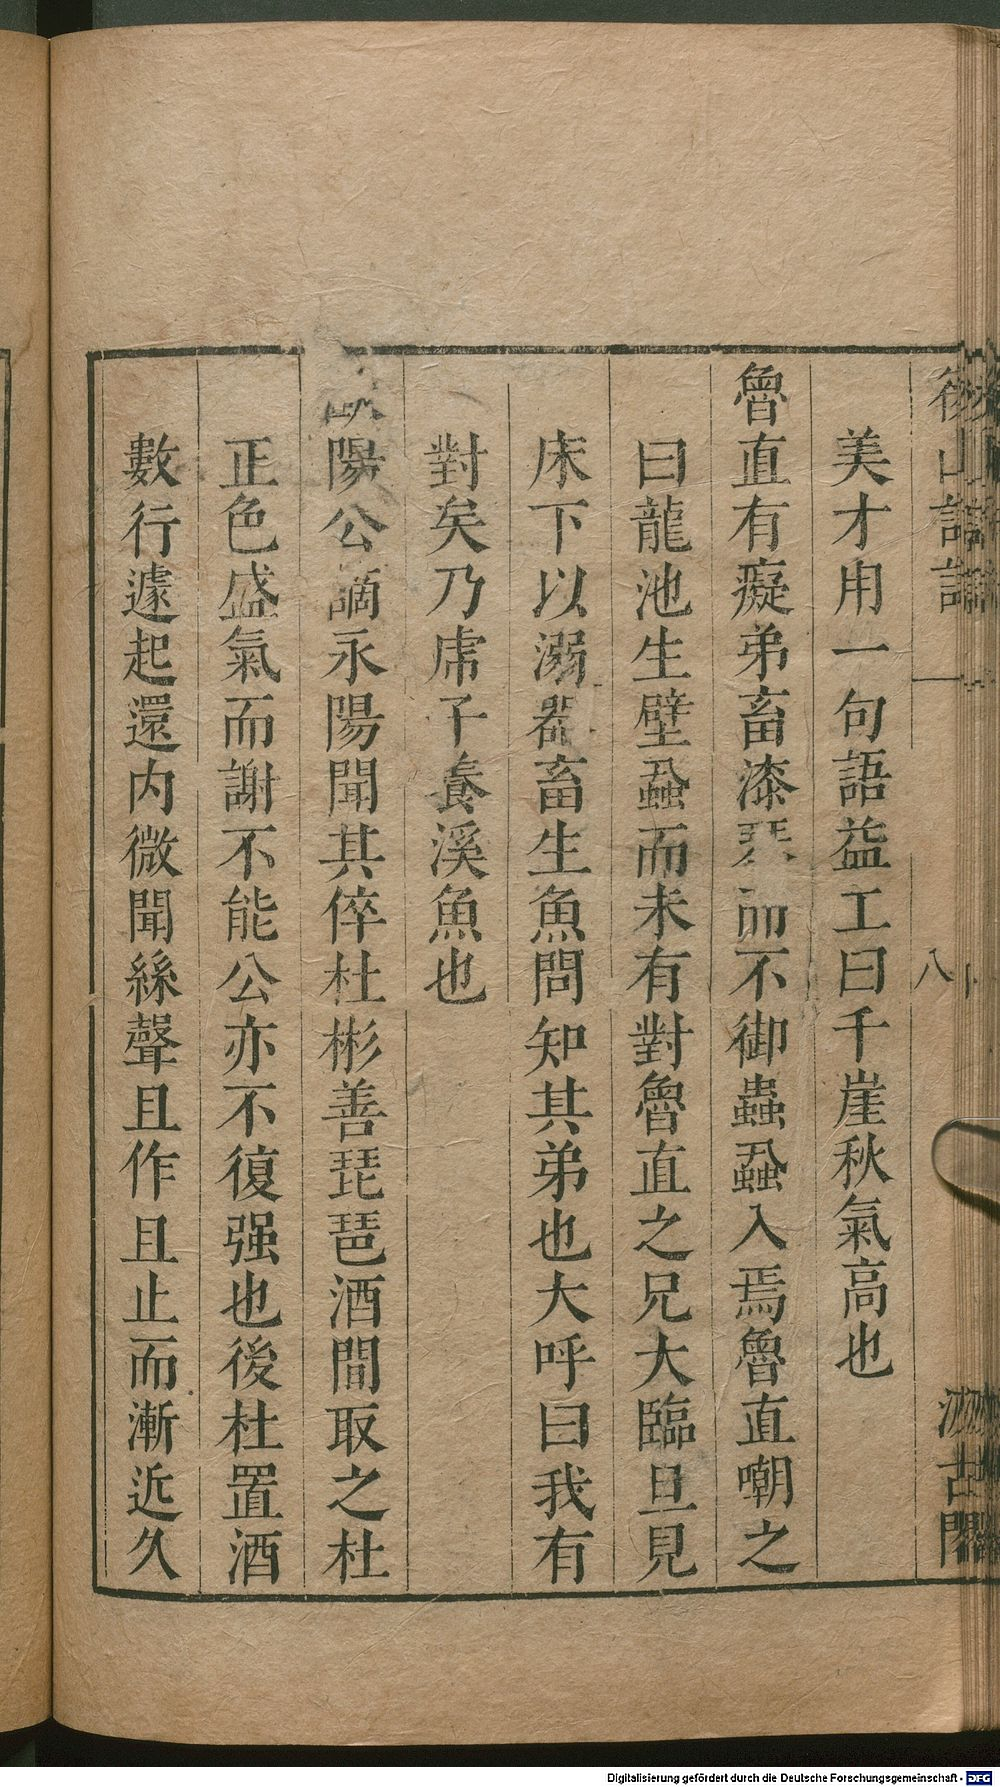 後山詩話
八
汲古閣
美才用一句語益工曰千崖秋氣高也
魯直有癡弟畜漆琴而不御蟲蝨入焉魯直嘲之
曰龍池生壁蝨而未有對魯直之兄大臨旦見
床下以溺器畜生魚問知其弟也大呼曰我有
對矣乃虎子養溪魚也
陽公謫永陽聞其倅杜彬善琵琶酒間取之杜
正色盛氣而謝不能公亦不復强也後杜置酒
數行遽起還内微聞絲聲且作且止而漸近久
Digitalisierung gefördert durch die Deutsche Forschungsgemeinschaft - DFG